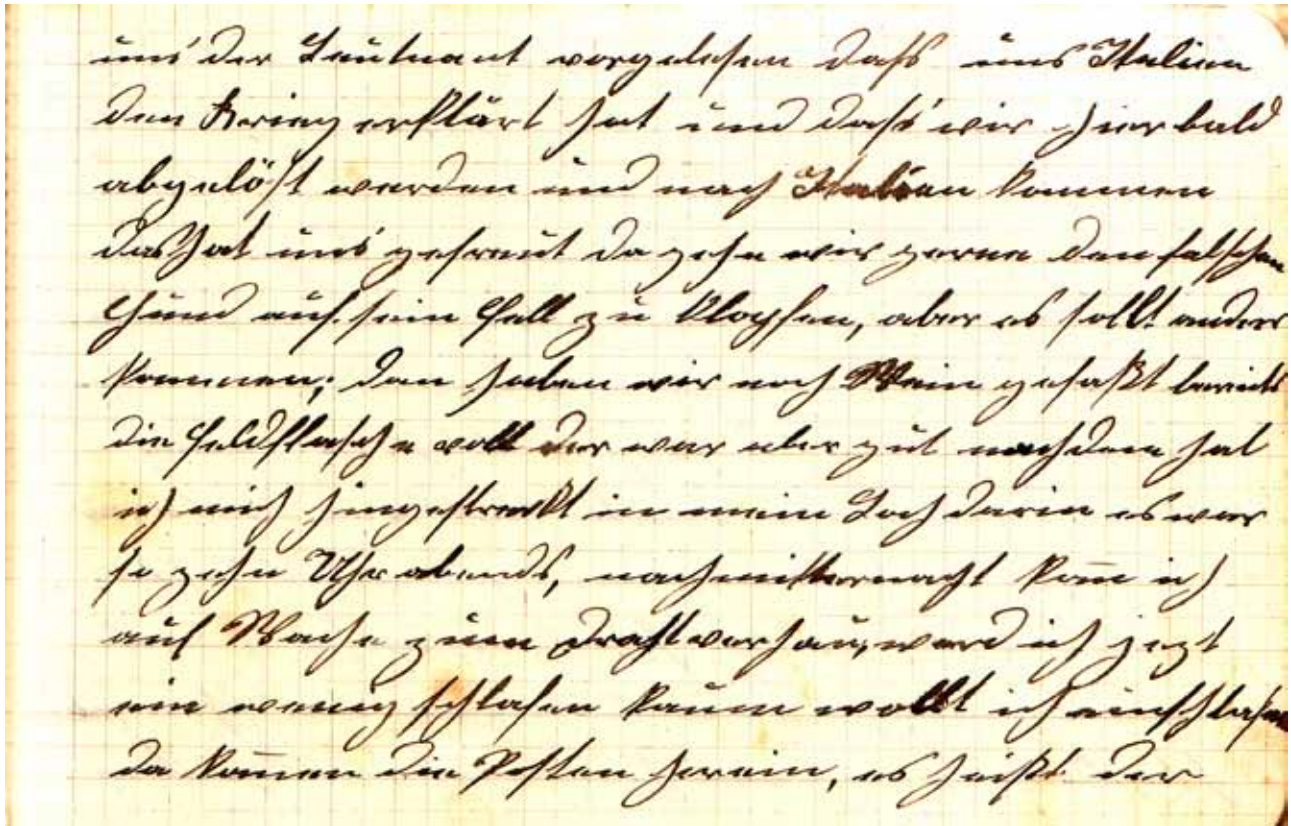 uns der Leutnant vorgelesen daß uns Italien
den Krieg erklärt hat und daß wir hier bald
abgelöst werden und nach Italien kommen
das hat uns gefreut da gehn wir gerne den falschen
Hund auf sein Fell zu klopfen, aber es sollt anders
kommen; dan haben wir noch Wein gefaßt bereits
die Feldflasche voll der war aber gut nachdem hat
ich mich hingestreckt in mein Loch darin es war
so zehn Uhr abends, nachmitternacht kom̄ ich
auf Wache zum Drahtverhau, werd ich jezt
ein wenig schlafen kaum wollt ich einschlafen
da kom̄en die Posten herein, es heißt der